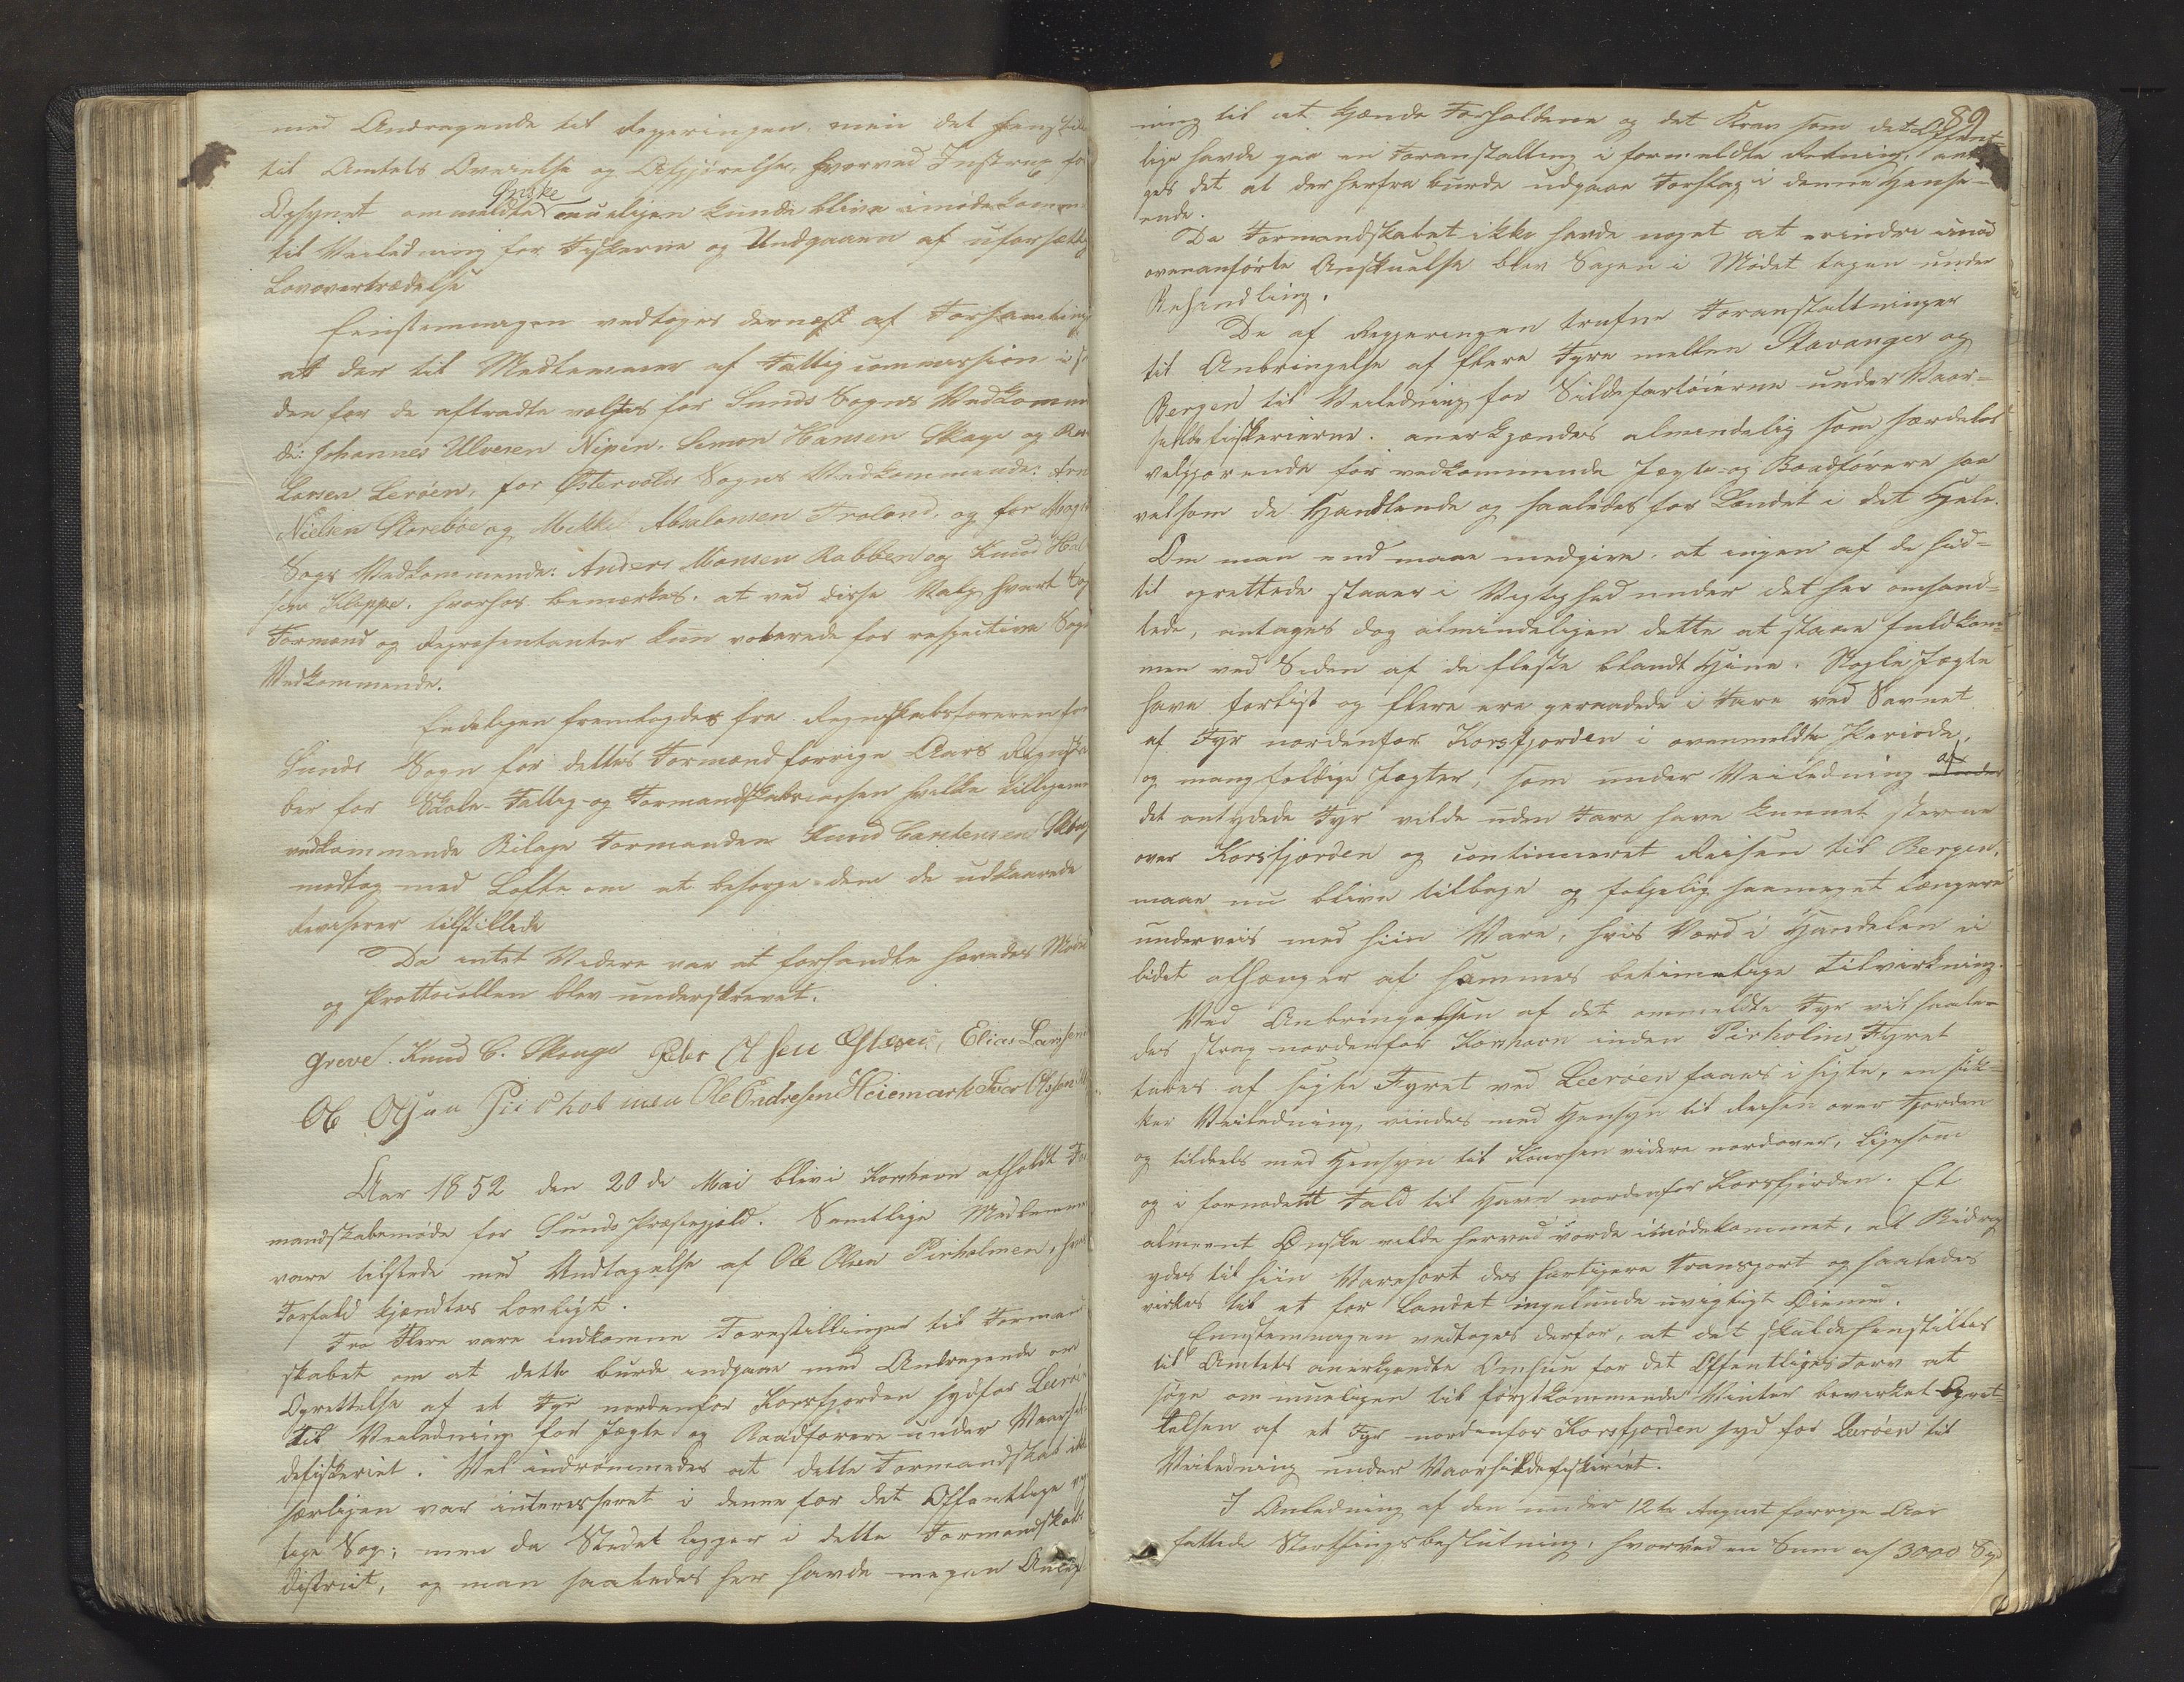 med Andragende til Regjeringen, men det henstilles
til Amtets Overveielse og Afgjørelse, hvorved
Ønske
Opsynet ommeldte mueligen kunde blive imødekommet
til Veiledning for Fiskerne og Undgaaen af uforsætlig
Lovovertrædelse
Eenstemmigen vedtoges dernæst af Forsamlingen
at der til Medlemmer af Fattigcommission i Ste
den for de aftraadte valgtes for Sunds Sogns Vedkommen
de: Johannes Ulvesen Nipen, Simon Hansen Skage og
Larsen Lerøen, for Østervolds Sogns Vedkommende: Arn
Nielsen Storebøe og Mikkel Absalonsen Troland, og for Møgster
Sogs Vedkommende: Anders Monsen Rabben og Knud Hal
sen Kleppe, hvorhos bemærkes, at ved disse Valg hvert Sogs
Formænd og Repræsentanter kun voterede for respective Sogs
Vedkommende.
Endeligen fremlagdes fra Regnskabsføreren for
Sunds Sogn for dettes Formænd forrige Aars Regnska
ber for Skole- Fattig- og Formandskabscassen hvilke tilligemed
vedkommende Bilage Formanden Knud Carstensen Skoug
modtog med Løfte om at besørge dem de udkaarede
Revisorer tilstillede
Da intet Videre var at forhandle hævedes Mødet
og Prottocollen blev underskrevet.
Greve. Knud C. Skouge Peder Olsen Glesnes, Elias Larsen
Ole Olsen Pirholmen Ole Endresen Heiemark Iver Olssen
Aar 1852 den 20de Mai blev i Korshavn afholdt For
mandskabsmøde for Sunds Præstegjæld. Samtlige Medlemmer
vare tilstede med Undtagelse af Ole Olsen Pirholmen, hvis
Forfald kjændtes lovligt.
Fra Flere vare indkomne Forestillinger til Formand
skabet om at dette burde indgaae med Andragende om
Oprettelse af et Fyr nordenfor Korsfjorden sydfor Lerøen
til Veiledning for Jægte og Baadførere under Vaarsil
defiskeriet. Vel indrømmedes at dette Formandskab ikke
særligen var interesseret i denne for det Offentlige vig
tige Sag; men da Stedet ligger i dette Formandskabs
District, og man saaledes her havde megen Anled
89
ning til at kjende Forholdene og det Krav som det Offent-
lige havde paa en Foranstaltning i formeldte Retning, anto
ges det at der herfra burde udgaae Forslag i denne Hense-
ende.
Da Formandskabet ikke havde noget at erindre imod
ovenanførte Anskuelse blev Sagen i Mødet tagen under
Behandling.
De af Regjeringen trufne Foranstaltninger
til Anbringelse af flere Fyre mellem Stavanger og
Bergen til Veiledning for Sildefartøierne under Vaar-
sildefiskerierne, anerkjændes almindelig som særdeles
velgjørende for vedkommende Jægte- og Baadførere saa
velsom de Handlende og saaledes for Landet i det Hele.
Om man end maae medgive, at ingen af de hid-
til oprettede staaer i Vigtighed under det her omhand-
lede, antages dog almindeligen dette at staae fuldkom-
men ved Siden af de fleste blandt Hine. Nogle Jægte
have forlist og flere ere geraadede i Fare ved Savnet
af Fyr nordenfor Korsfjorden i ovenmeldte Periode,
og mangfoldige Jægter, som under Veiledning af
det antydede Fyr vilde uden Fare have kunnet styre
over Korsfjorden og continueret Reisen til Bergen,
maae nu blive tilbage og følgelig saameget længere
underveis med hiin Vare, hvis Værd i Handelen ei
lidet afhænger af sammes betimelige Tilvirkning.
Ved Anbringelsen af det ommeldte Fyr vil saale-
des strax nordenfor Korshavn inden Pirholms Fyret
tabes af sigte Fyret ved Leerøen faaes i sigte, en sik-
ker Veiledning vindes med Hensyn til Reisen over Fjorden
og tildeels med Hensyn til Koursen videre nordover, ligesom
og i fornødent Fald til Havn nordenfor Korsfjorden. Et
almeent Ønske vilde herved vorde imødekommet, et Bidrag
ydes til hiin Varesort des hurtigere Transport og saaledes
virkes til et for Landet ingenlunde uvigtigt Øiemed.
Eenstemmigen vedtoges derfor, at det skulde henstilles
til Amtets anerkjendte Omsim for det Offentliges Tarv at
søge om mueligen til førstkommende Vinter bevirket Opret-
telsen af et Fyr nordenfor Korsfjorden syd for Leerøen til
Veiledning under Vaarsildefiskeriet.
I Anledning af den under 12te August forrige Aar
fattede Storthingsbeslutning, hvorved en Sum af 3000 Spd